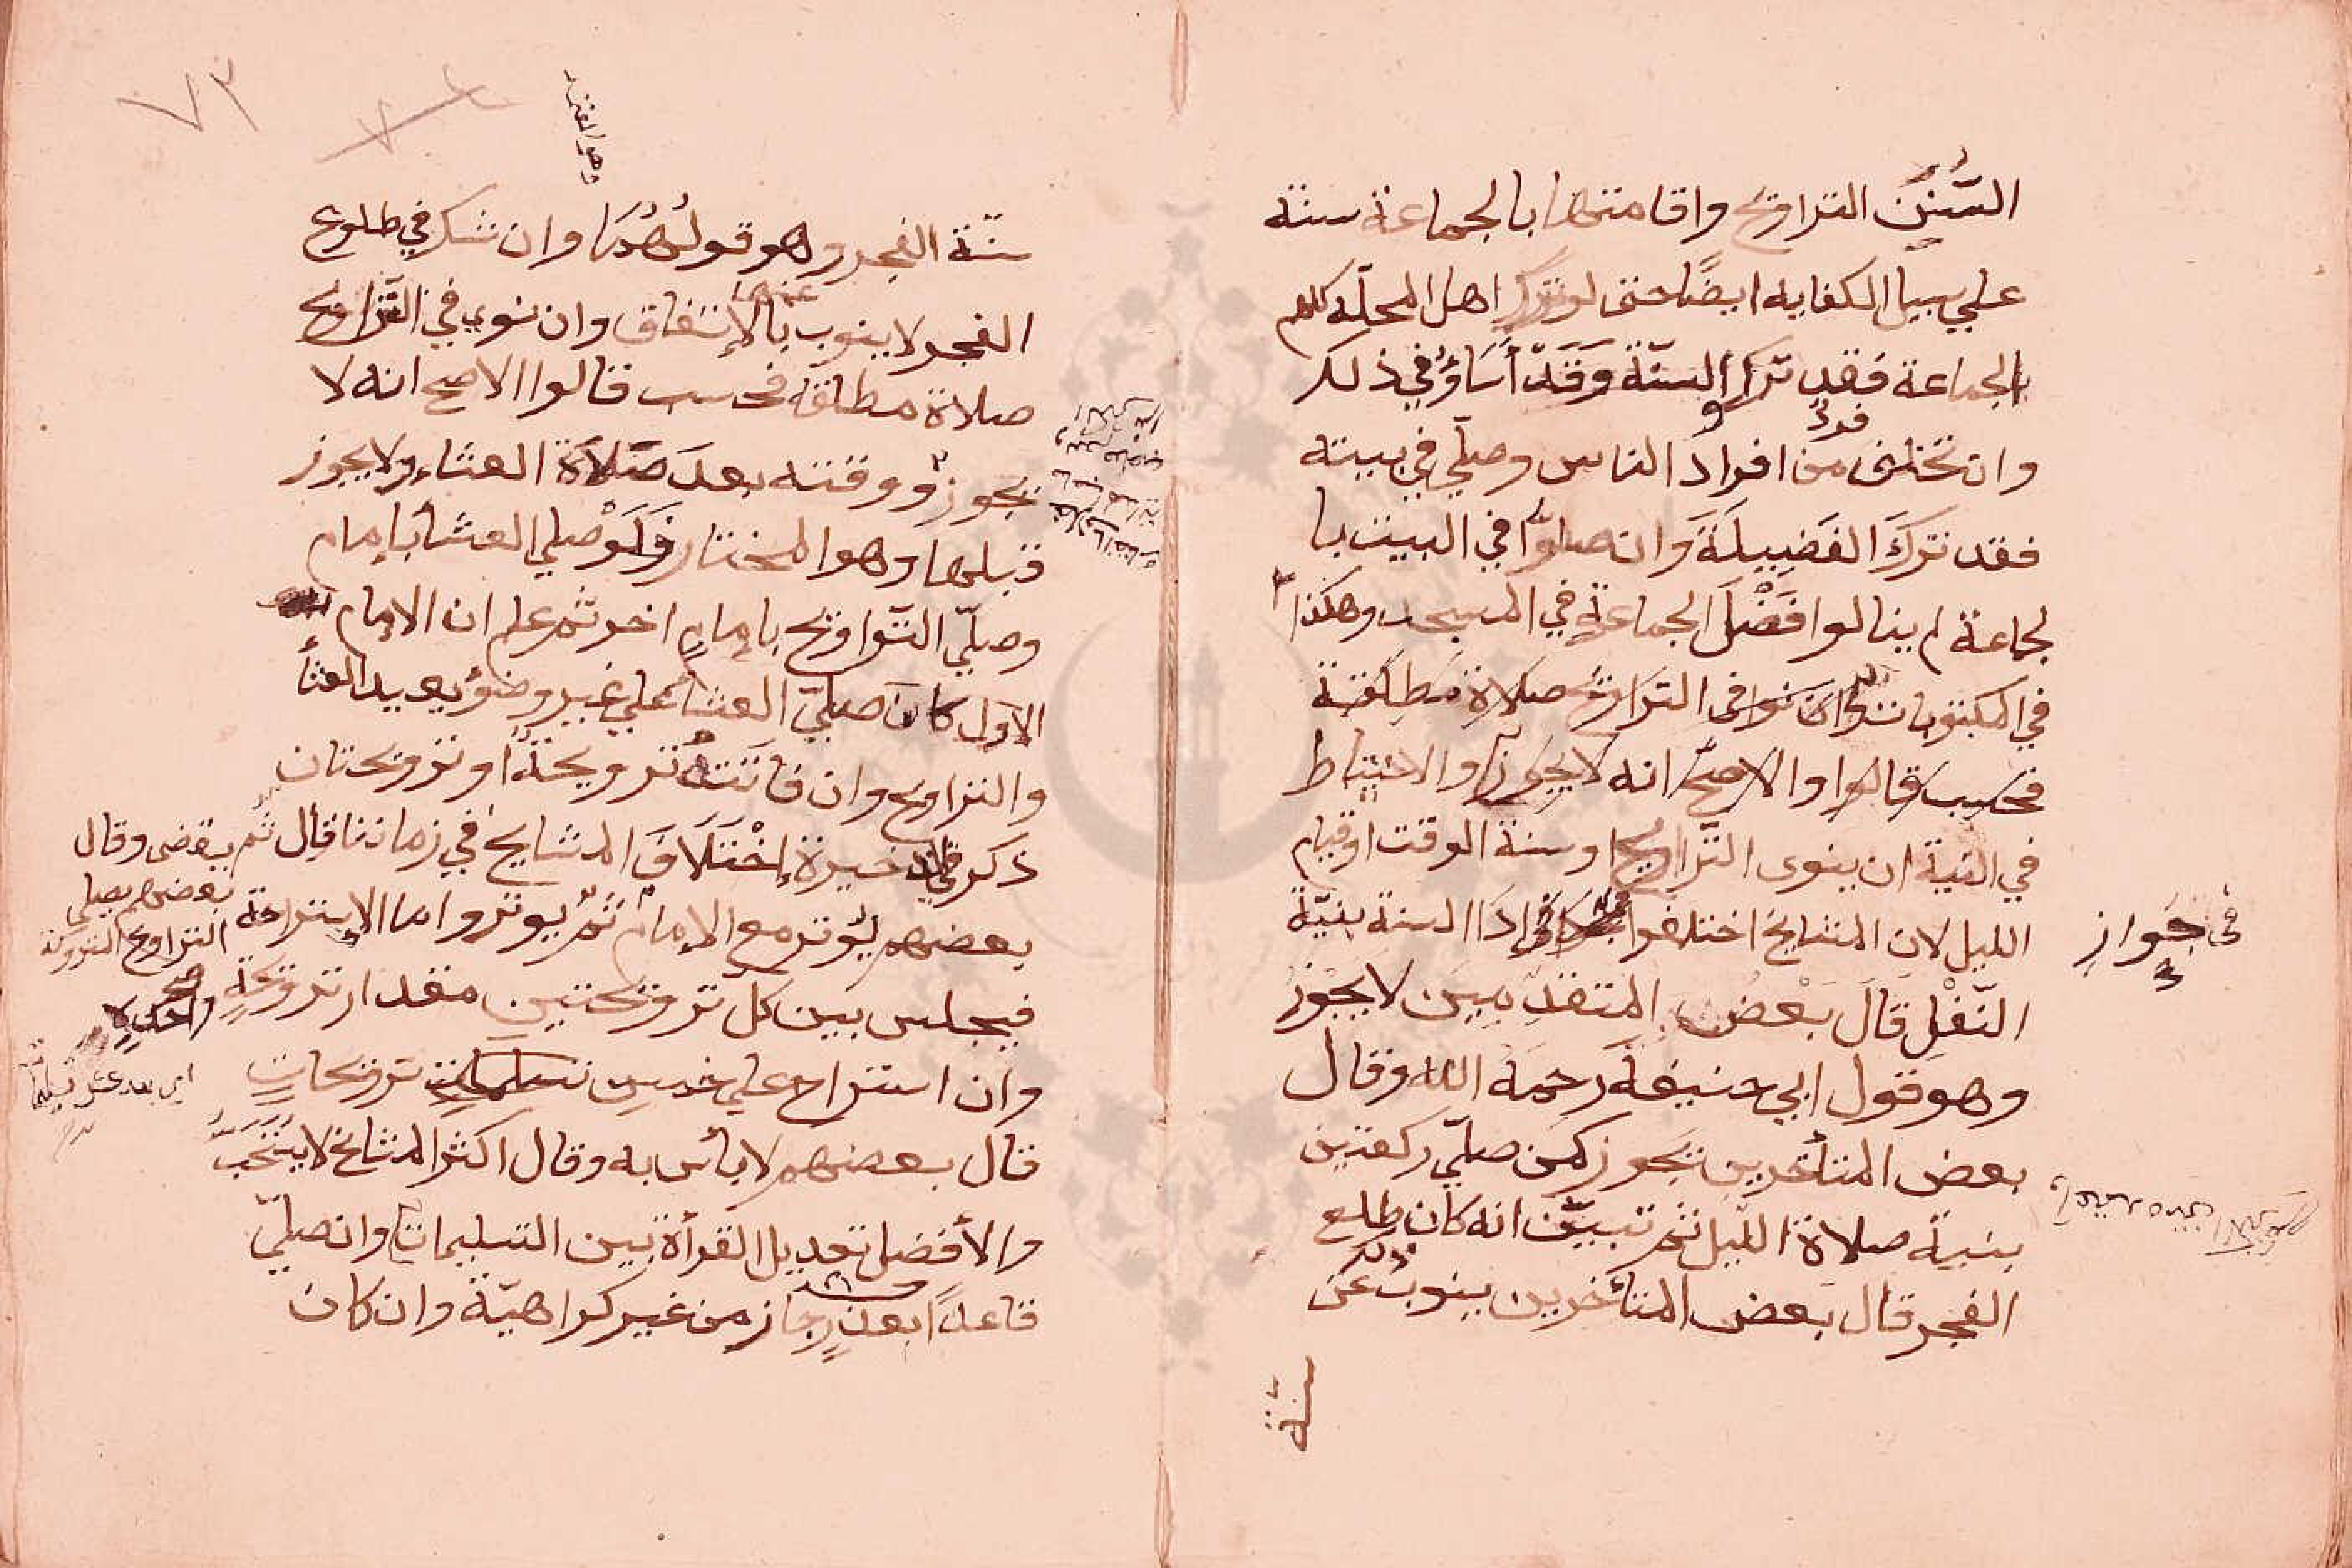 السُّنَنُ التراويح واقامتها بالجماعة سنة
علي سبيل الكفايه ايضًا حتى لو ترك اهل المحلّه كلهم
الجماعة فقد تركوا السنّة وَقَدْ أَسَاؤُ في ذلك
وان تخلف من افراد الناس وصلّي في بيته
فردٌ
فقد تركَ الفَضِيلَةَ وان صلوا في البيت با
لجماعة لم ينالوا فَضْلَ الجماعةِ في المسجد وهكذا
في المكتوبات وان نوى في التراويح صلاة مطلقة
فحسب قالوا والاصحّ انه لا يجوز والاحتياط
في النية ان ينوى التّراويح او سنة الوقت او قيام
الليل لان المشايخ اختلفوا اداا السنة بنيّة
في جواز
النّفْلِ قالَ بَعْضُ المتقدّمِين لا يجُوزُ
وهو قول ابي حنيفة رحمة الله وقال
بعض المتأخرين يجوز كمن صلّي ركعتين
بنية صلاة اللّيل ثم تبيّن انه كان طلع
الفجر قال بعض المتأخرين ينوب عن
سنة
٧٣
سنّة الفجر وهو قولُهُمَا وان شك في طلوع
الفجر لا ينوب عنهما بالإتفاق وان نوي في التّراويح
صلاة مطلقة فحسب قالوا الاصح انه لا
يجوز ووقته بعدَ صَلاَةَ العشاء ولا يجوز
قبلها وهو المختار فَلَوْ صلي العشأ بإمام
وصلّي التّراويح بإمامٍ اخر ثم علم ان الإمام
الاول كانَ صلّيَ العشا علي غير وضوُ يعيد العشأ
والتراويح وان فَاتَتْهُ ترويحةٌ او ترويحتان
ذكر في الذخيرة إِخْتَلَافَ المشايخ في زماننا قال ثم يقضى وقال
بعضهم يُوتر مع الإمام ثم يوتر واما الإستراحة
بعضهم يصلي
التراويح المتروكة
فيجلس بين كل ترويحتين مقدار ترويحةٍ واحدةٍ
وان استراح علي خمسِ ترويحاتٍ
قال بعضهم لا بأس به وقال اكثر المشايخ لا يُسْتَحَبُّ
والأفضل تعديل القرأة بين التسليمات وان صلّي
قاعدًا بعذرٍ جاز من غير كراهيّة وان كان